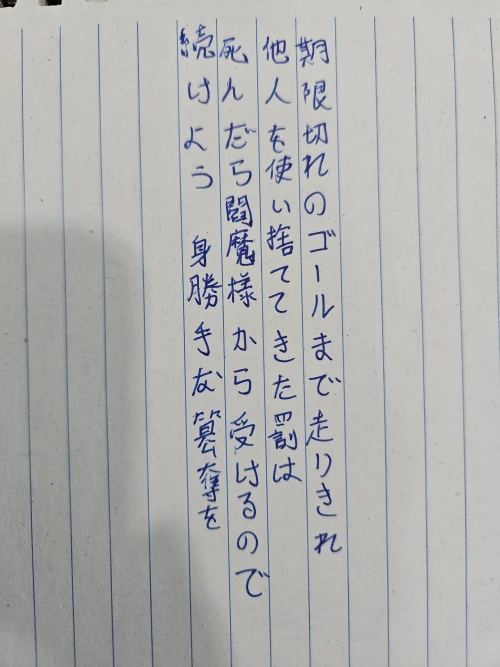 期限切れのゴールまで走りきれ
他人を使い捨ててきた罰は
死んだら閻魔様から受けるので
続けよう　身勝手な簒奪を